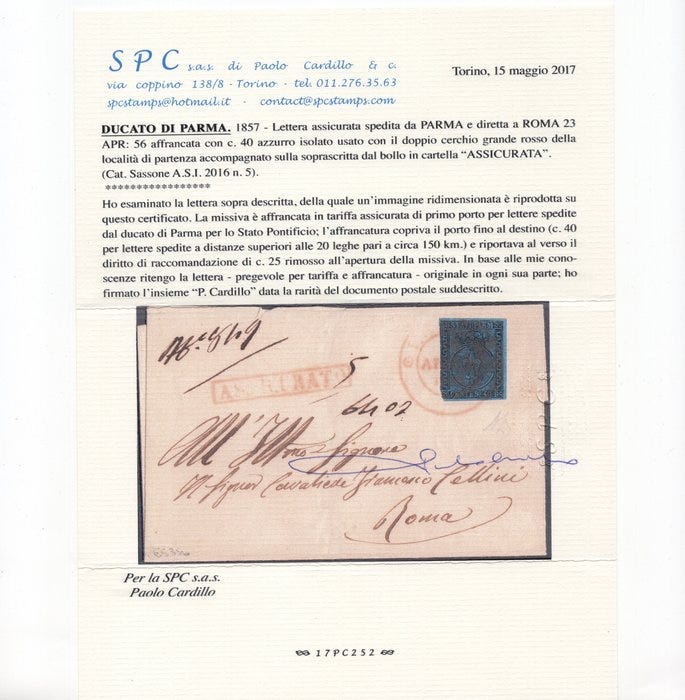 SPC s.a.s. di Paolo Cardillo & c.
via coppino 138/8 - Torino - tel. 011.276.35.63
spcstamps@hotmail.it - contact@spcstamps.com
Torino, 15 maggio 2017
DUCATO DI PARMA. 1857 - Lettera assicurata spedita da PARMA e diretta a ROMA 23
APR: 56 affrancata con c. 40 azzurro isolato usato con il doppio cerchio grande rosso della
località di partenza accompagnato sulla soprascritta dal bollo in cartella “ASSICURATA”.
(Cat. Sassone A.S.I. 2016 n. 5).
*****************
Ho esaminato la lettera sopra descritta, della quale un'immagine ridimensionata è riprodotta su
questo certificato. La missiva è affrancata in tariffa assicurata di primo porto per lettere spedite
dal ducato di Parma per lo Stato Pontificio; l'affrancatura copriva il porto fino al destino (c. 40
per lettere spedite a distanze superiori alle 20 leghe pari a circa 150 km.) e riportava al verso il
diritto di raccomandazione di c. 25 rimosso all'apertura della missiva. In base alle mie cono-
scenze ritengo la lettera - pregevole per tariffa e affrancatura - originale in ogni sua parte; ho
firmato l'insieme “P. Cardillo” data la rarità del documento postale suddescritto.
ASSICURATA
5
6402
All' Ill.mo Signore
Il Signor Cavaliere Francesco Cellini
Roma
Per la SPC s.a.s.
Paolo Cardillo
17PC252